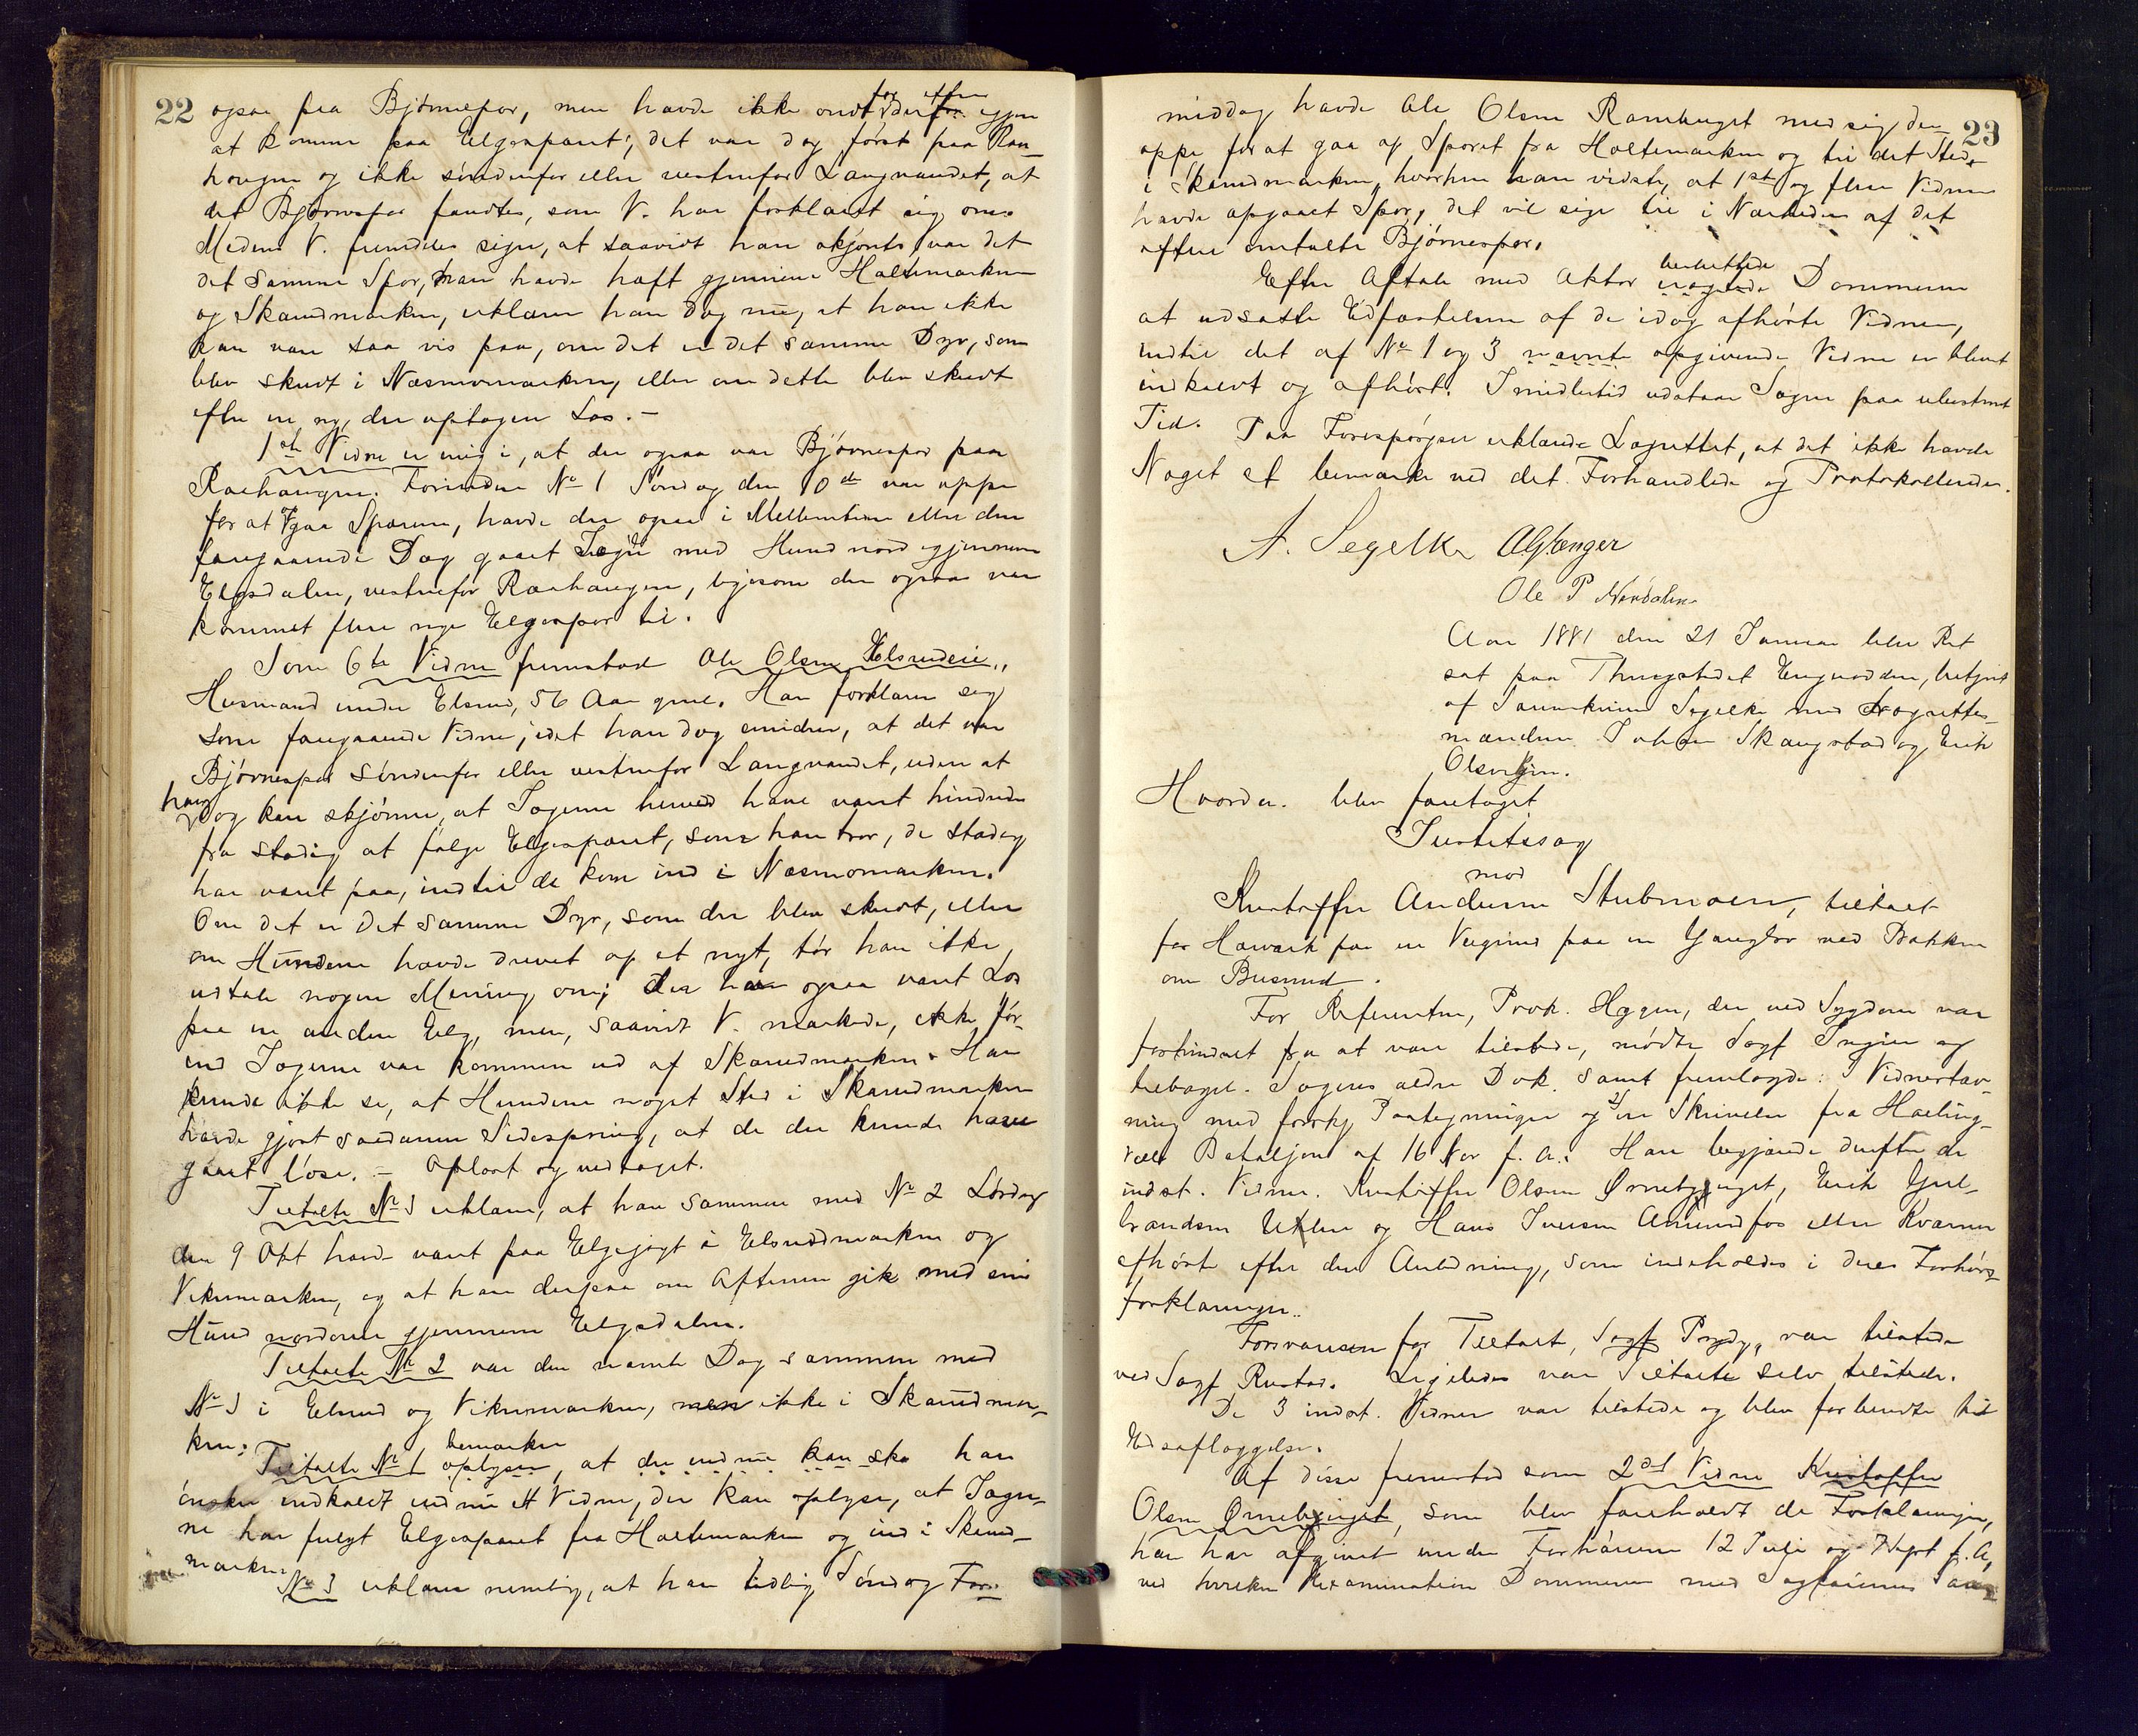 22
ogsaa paa Bjørnespor, men havde ikke ondt for derefter igjen
at komme paa Elgsporet; det var dog først paa Rau-
haugen og ikke søndenfor eller vestenfor Langvandet, at
det Bjørnespor fandtes, som V. har forklaret sig om.
Medens V. fremdeles siger, at saavidt han skjønte var det
det samme Spor, han havde havt gjennem Holtemarken
og Skarudmarken, erklærer han dog nu, at han ikke
kan være saa vis paa, om det er det samme Dyr, som
blev skudt i Næsmomarken, eller om dette blev skudt
efter en ny, der optagen Los. –
1ste Vidne er enig i, at der ogsaa var Bjørnespor paa
Rauhaugen. Forinden No 1 Søndag den 10de var oppe
for at gaa Sporene, havde der ogsaa i Mellemtiden eller den
foregaaende Dag gaaet Jægere med Hund nord igjennem
Elgsdalen, vestenfor Rauhaugen, ligesom der ogsaa var
kommet flere nye Elgespor til.
Som 6te Vidne fremstod Ole Olsen Elsrudeie,
Husmand under Elsrud, 56 Aar gml. Han forklarer sig
som foregaaende Vidne, idet han dog erindrer, at det var
Bjørnespor søndenfor eller vestenfor Langvandet, uden at
han dog kan skjønne, at Jægerne herved have været hindrede
fra stadig at følge Elgesporet, som han tror, de stadig
har været paa, indtil de kom ind i Næsmomarken.
Om det er det samme Dyr, som der blev skudt, eller
om Hundene havde drevet op et nyt, tør han ikke
udtale nogen Mening om; der har ogsaa været Los
paa en anden Elg, men, saavidt V. mærkede, ikke før-
end Jægerne var kommen ud af Skarudmarken. Han
kunde ikke se, at Hundene noget Sted i Skarudmarken
havde gjort saadanne Sidespring, at de der kunde have
gaaet løse. – Oplæst og vedtaget.
Tiltalte No 3 erklærer, at han sammen med No 2 Lørdag
den 9 Okt havde været paa Elgejagt i Elsrudmarken og
Vikermarken, og at han derpaa om Aftenen gik med sin
Hund nordover gjennem Elgsdalen.
Tiltalte No 2 var den nævnte Dag sammen med
No 3 i Elsrud og Vikermarken, men ikke i Skarudmar-
ken.
bemærker
Tiltalte No 1 oplyser, at der endnu kan ske han
ønsker indkaldt endnu et Vidne, der kan oplyse, at Jæger-
ne har fulgt Elgesporet fra Holtemarken og ind i Skarud-
marken.
No 3 erklærer nemlig, at han tidlig Søndag For-
23
middag havde Ole Olsen Ramhuget med sig der
oppe for at gaa op Sporet fra Holtemarken og til det Sted
i Skarudmarken, hvorhen han vidste, at 1ste og flere Vidner
havde opgaaet Spor, det vil sige til i Nærheden af det
oftere omtalte Bjørnespor.
Efter Aftale med Aktor besluttede Dommeren
at udsætte Edfæstelsen af de idag afhørte Vidner,
indtil det af No 1 og 3 nævnte opgivende Vidne er blevet
indkaldt og afhørt. Imidlertid udstaar Sagen paa ubestemt
Tid. Paa Forespørgsel erklærede Lagrettet, at det ikke havde
Noget at bemærke ved det Forhandlede og Protokollerede.
A. Segelke
Ole P Nordalen
Aar 1881 den 21 Januar blev Ret
sat paa Thingstedet Engnodden, betjent
af Sorenskriver Segelke med Lagrettes-
mændene Johan Skaugstad og Erik
Olsen
Hvorda blev foretaget
Justitssag
mod
Kristoffer Andersen Stubmoen, tiltalt
for Hærværk paa en Veigrind paa en Gangbro ved Bakken
om Busnrud.
For Referenten, Prok. Hygen, der ved Sygdom var
forhindret fra at være tilstede, mødte Sagf og
Sagens ældre Dok. samt fremlagde: 1 Vidnestæv-
ning med forskj. Paategninger og 2) en Skrivelse fra Halling-
dals Bataljon af 16 Nov f. A. Han begjærede derefter de
indst. Vidner. Kristoffer Olsen Ørnebygget, Erik Gul-
brandsen Uhlen og Hans Iversen Amundfos eller Kværnen
afhørte efter den Anledning, som indeholdes i deres Forhørs-
forklaringer.
Forsvareren for Tiltalte, Sagf Prydz, var tilstede
ved Sagf Rustad. Ligeledes var Tiltalte selv tilstede.
De 3 indst. Vidner var tilstede og blev forberedte til
Edsaflæggelse.
Af disse fremstod som 2det Vidne Kristoffer
Olsen Ørnebygget, som blev foreholdt de Forklaringer,
han har afgivet under Forhørene 12 Juli og 7 Sept f. A,
ved hvilken Examination Dommeren med Sagførernes